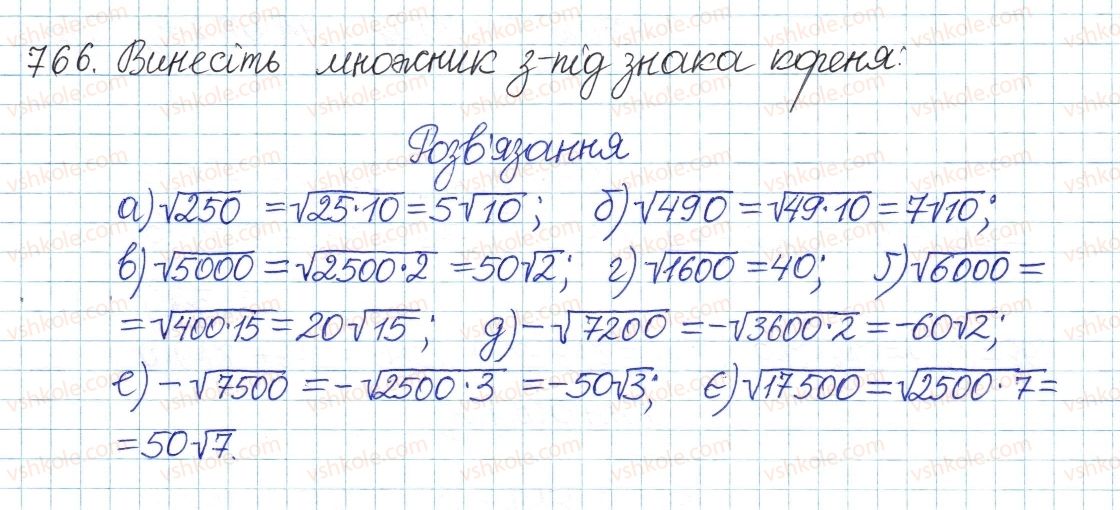 766. Винесіть множник з-під знака кореня:
Розв'язання
а) √250 = √25·10 = 5√10; б) √490 = √49·10 = 7√10;
в) √5000 = √2500·2 = 50√2; г) √1600 = 40; ґ) √6000 =
= √400·15 = 20√15; д) -√7200 = -√3600·2 = -60√2;
е) -√7500 = -√2500·3 = -50√3; є) √17500 = √2500·7 =
= 50√7.